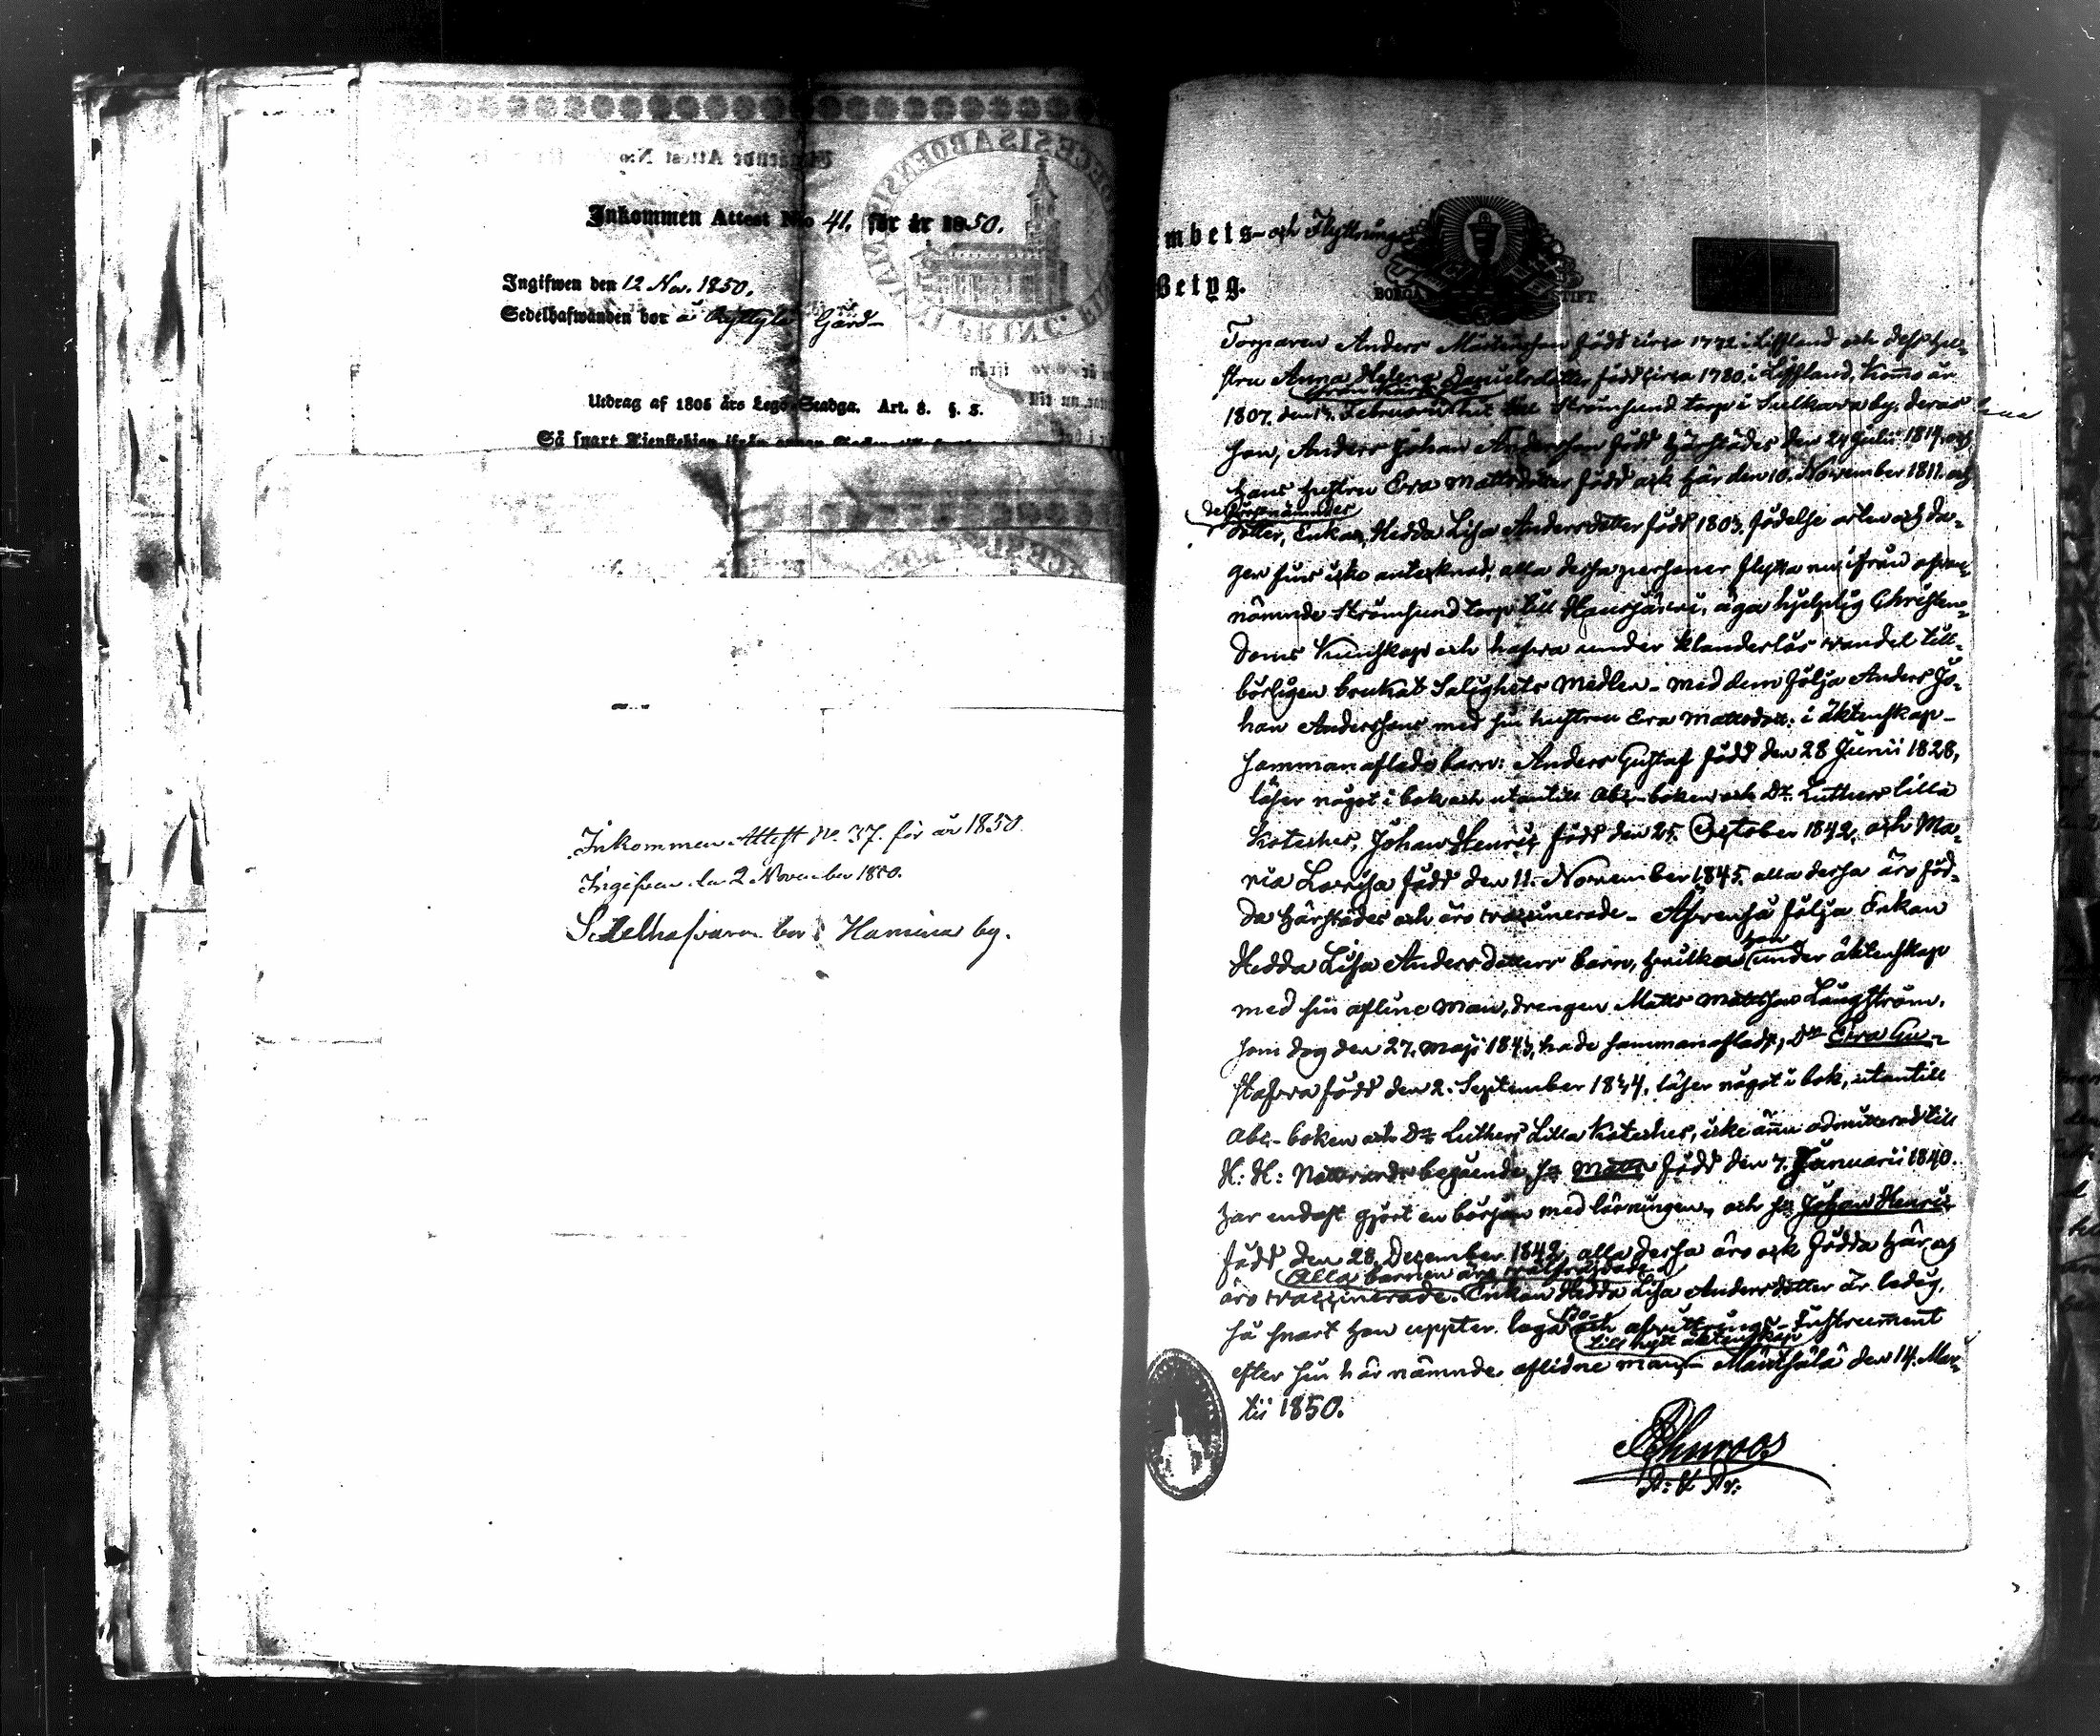 Inkommen Attest N:o 41. för år 1850.
Ingifwen den 12 Nov. 1850.
Sedelhafwanden bor å Ryttylä Gård
Utdrag af 1805 års Lego-Stadga. Art. 8. §. 5.
Så snart
Inkommen Attest No. 37. för år 1850
Ingifven den 2 November 1850.
Sedelhafvaren bor i Hamina by.
mbets- och Flyttnings
Betyg.
BORGÅ STIFT
Torparen Anders Mårtensson född circa 1772 i Liffland och dess hu-
stru Anna Helena Danielsdotter född circa 1780 i Liffland, kommo år
1807. den Februarii hit till Strömsund torp i Sulkava by. deras
son, Anders Johan Andersson född härstädes den 24 Julii 1814. och
hans hustru Eva Mattsdotter född ock här den 10. November 1811. och
de förstnämndes
dotter, Enkan Hedda Lisa Andersdotter född 1803. födelse orten och da-
gen fins icke antecknad, alla dessa personer flytta nu ifrån ofvan-
nämnde Strömsund torp till Hausjärvi, äga hjelplig Christen-
doms kunskap och hafva under klanderlös vandel till-
börligen brukat Salighets Medlen - med dem följa Anders Jo-
han Anderssons med sin hustru Eva Mattsdott: i äktenskap
samman aflade barn: Anders Gustaf född den 28 Junii 1828,
läser något i bok och utantill abc-boken och Dr. Luthers lilla
Kateches, Johan Henric född den 25. October 1842. och Ma-
ria Lovisa född den 11. November 1845. alla dessa äro föd-
da härstädes och äro vaccinerade - Äfvenså följa Enkan
Hedda Lisa Andersdotters barn, hvilka hon under äktenskap
med sin aflidne man, drengen Matts Mattsson Långström,
som dog den 27. Maji 1843, hade sammanaflade, Dr Eva Gu-
stafva född den 2. September 1834. läser något i bok, utantill
abc-boken och Dr. Luthers Lilla Kateches, icke ännu admitterad till
H: H: Nattvards begående, Matts född den 7. Januarii 1840.
har endast gjort en början med läsningen, och Johan Henric
född den 28. December 1842, alla dessa äro ock födda här och
Alla barnen äro
äro vaccinerade. Enkan Hedda Lisa Andersdotter är ledig,
så snart hon uppter. laga och afvittrings-Instrument
till nytt äktenskap
efter sin här nämnde aflidne man, - Mäntsälä den 14. Mar-
tii 1850.